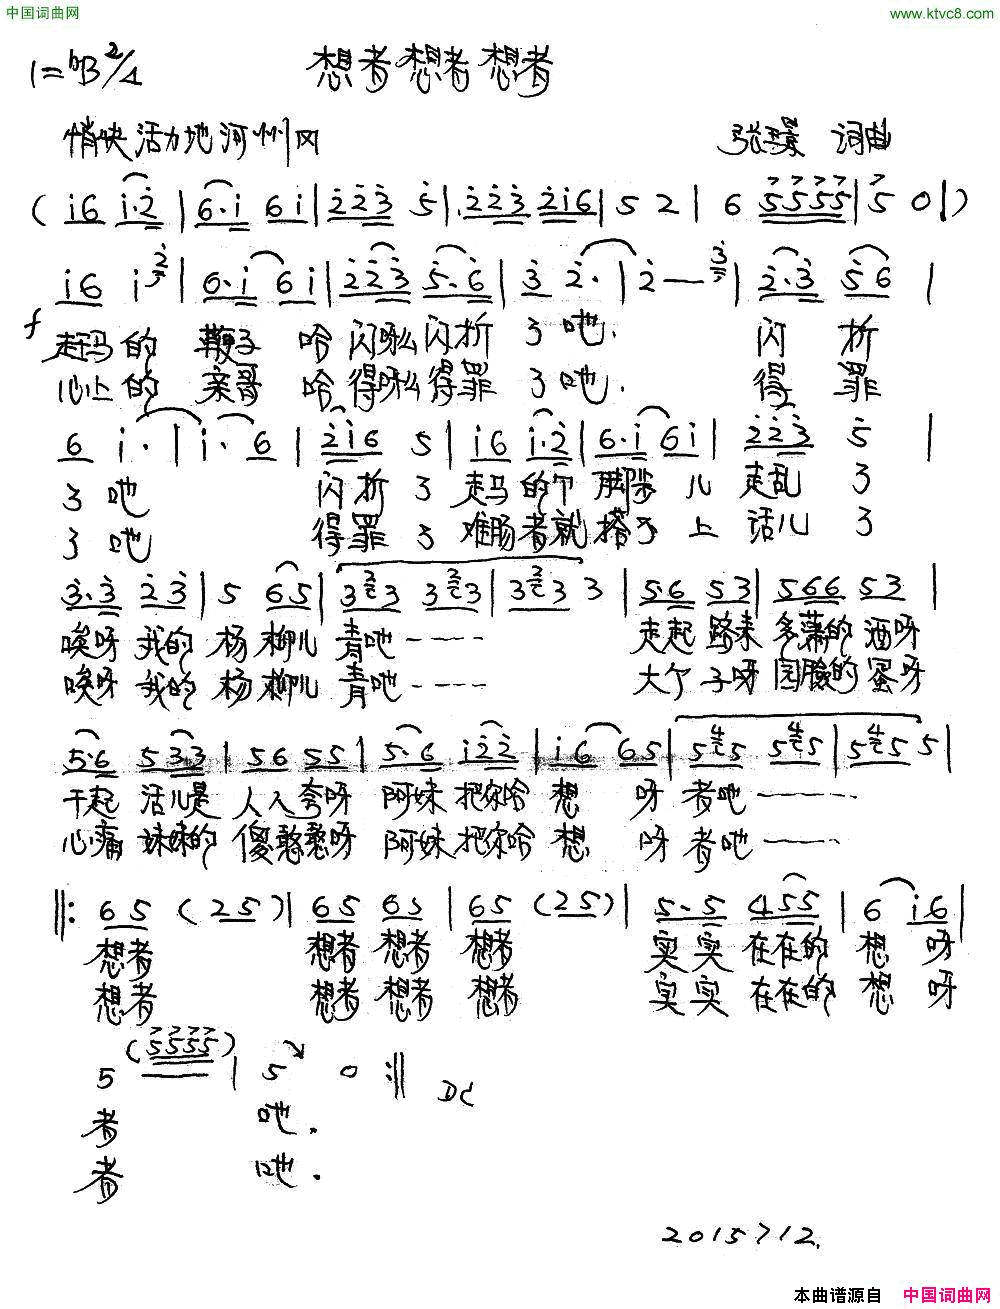 中国词曲网
www.ktvc8.com
1=♭B 2/4 想者想者想者
悄快活力地河州风 张景 词曲
( i6 i·2 | 6·i 6i | 223 5 | 223 2i6 | 5 2 | 6 5555 | 5 0 | )
i6 i 2/5 | 6·i 6i | 223 5·6 | 3 2· | 2 — — 3/5 | 2·3 56 |
f
赶马的 鞭子 哈 闪呀么闪折 了吔. 闪 折
心上的 亲哥 哈 得呀么得罪 了吔. 得 罪
6 i· | i· 6 | 2i6 5 | i6 i·2 | 6·i 6i | 223 5 |
了 吔 闪 折 了 走马 的个 脚步 儿 走乱 了
了 吔 得 罪 了 难肠者就搭不 上 话儿 了
3·3 23 | 5 65 | 3 3 3 3 | 3 3 3 | 56 53 | 566 53 |
唉呀 我的 杨 柳儿 青吔 ---- 走起 路来 多荡的 洒呀
唉呀 我的 杨 柳儿 青吔 ---- 大个 子呀 园脸的 蜜呀
5·6 533 | 56 55 | 5·6 i22 | i6 65 | 5 4 5 5 4 5 | 5 4 5 5 |
干起 活儿是 人人 夸呀 阿妹 把你哈 想 呀 者吔 ----
心痛 妹妹的 傻憨憨呀 阿妹 把你哈 想 呀 者吔 ----
‖: 65 (25) | 65 65 | 65 (25) | 5·5 455 | 6 i6 |
想者 想者 想者 想者 实实 在在的 想 呀
想者 想者 想者 想者 实实 在在的 想 呀
(5555)
5 | 5 0 :‖ DC
者 吔.
者 吔.
2015 7 12.
本曲谱源自 中国词曲网